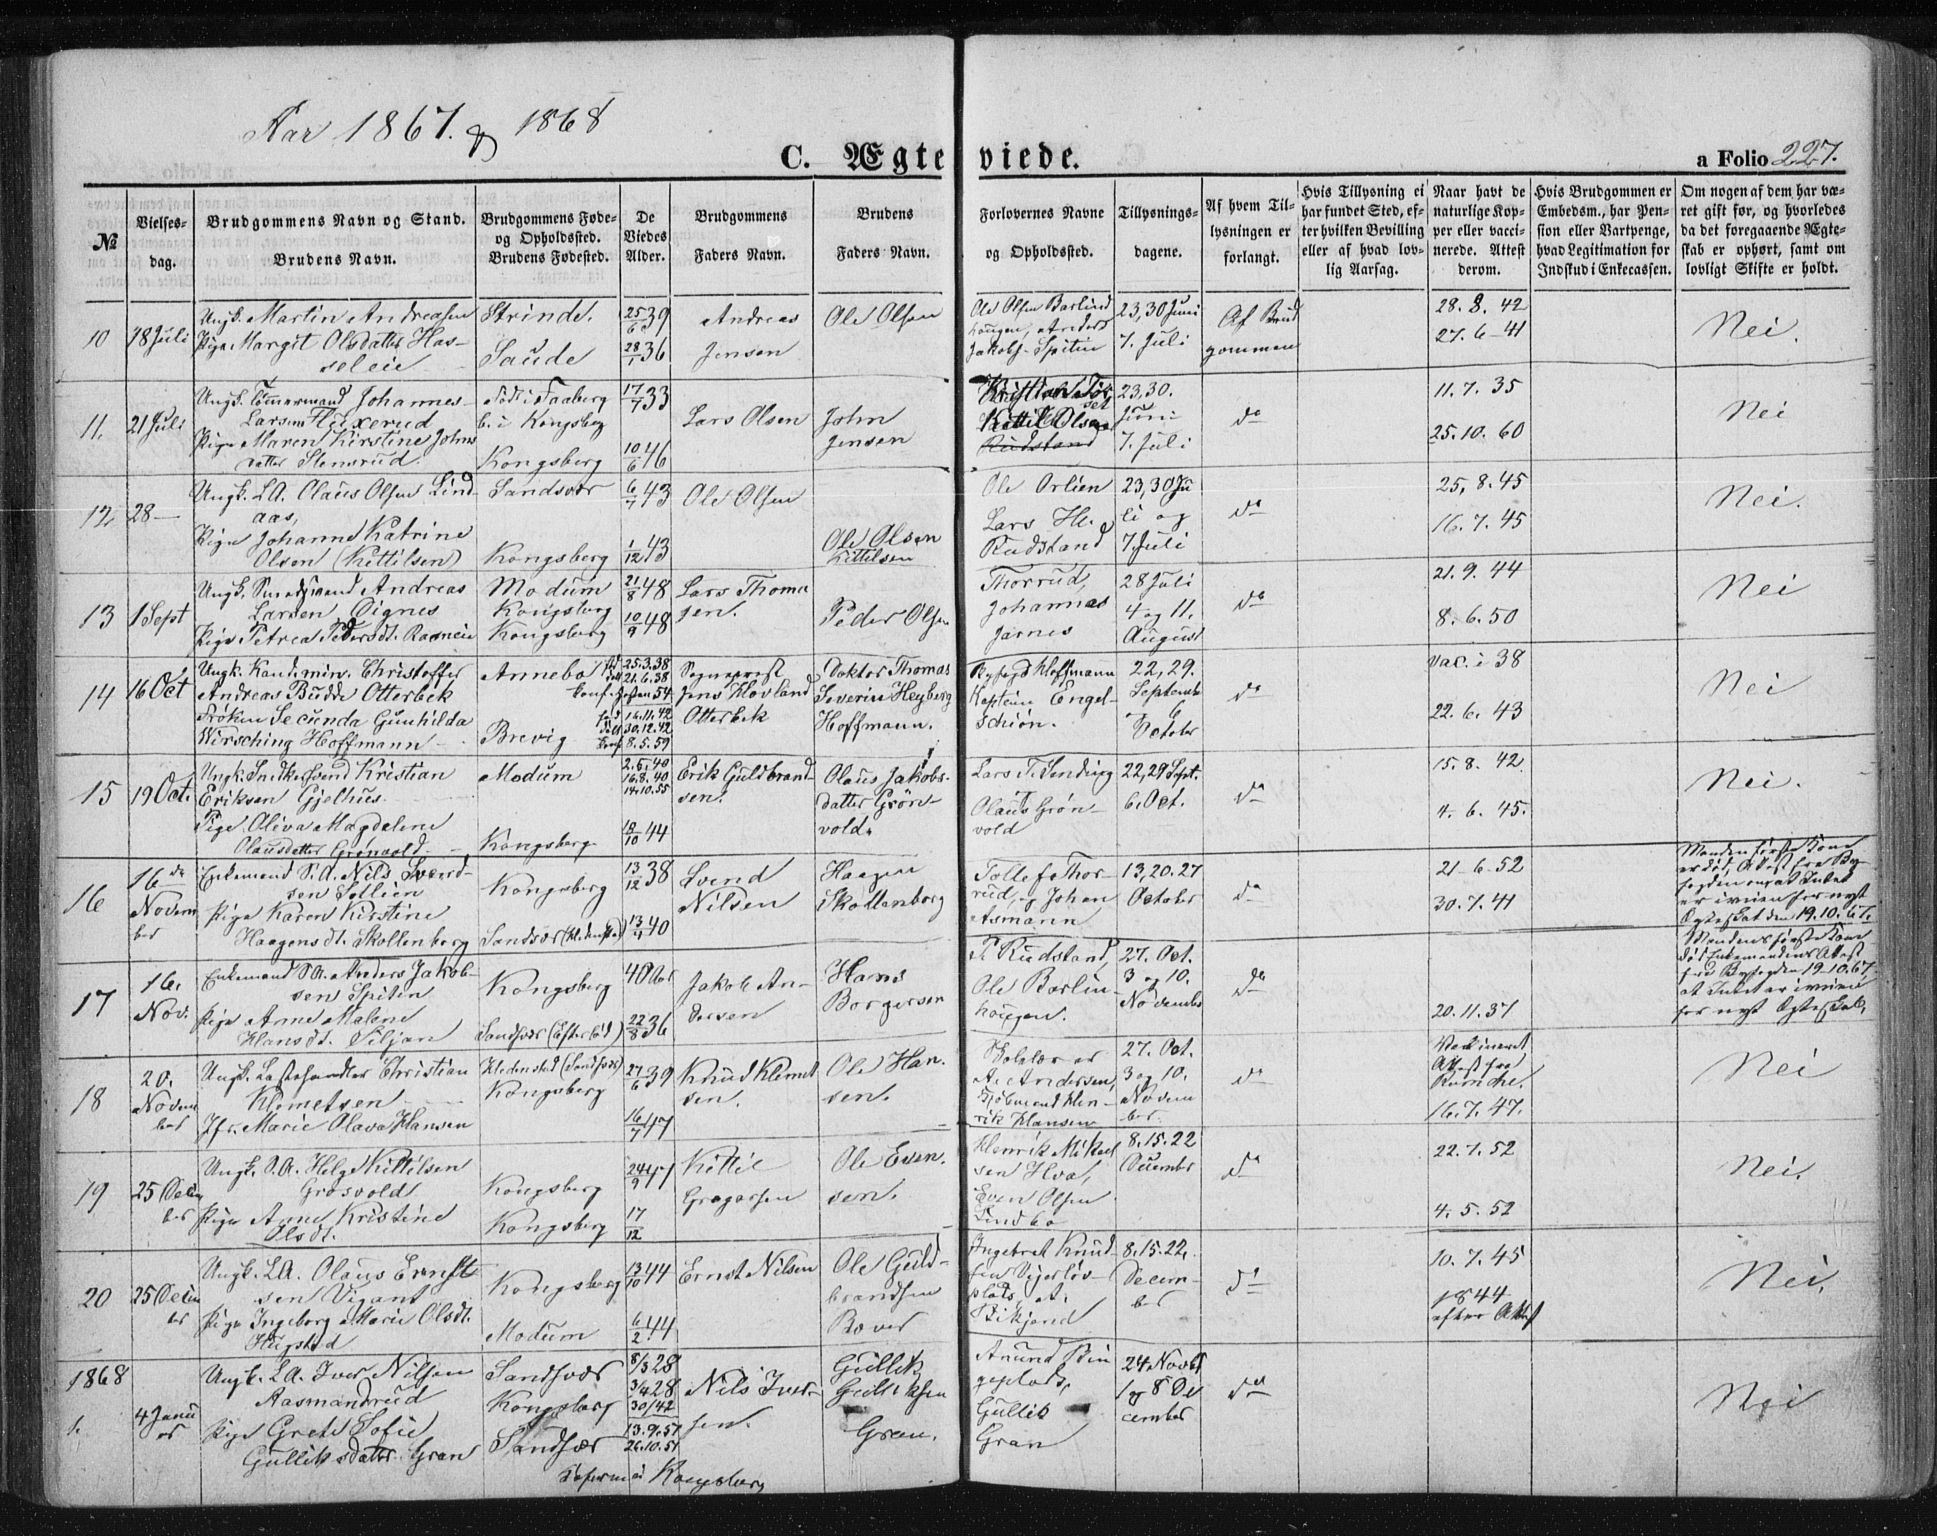 Aar 1867. & 1868
C. Ægteviede.
a Folio 227.
№
Vielses-
dag.
Brudgommens Navn og Stand.
Brudens Navn.
Brudgommens Føde-
og Opholdssted.
Brudens Fødested.
De
Viedes
Alder.
Brudgommens
Faders Navn.
Brudens
Faders Navn.
Forlovernes Navne
og Opholdssted.
Tillysnings-
dagene.
Af hvem Til-
lysningen er
forlangt.
Hvis Tillysning ei
har fundet Sted, ef-
ter hvilken Bevilling
eller af hvad lov-
lig Aarsag.
Naar havt de
naturlige Kop-
per eller vacci-
nerede. Attest
derom.
Hvis Brudgommen er
Embedsm., har Pen-
sion eller Vartpenge,
hvad Legitimation for
Indskud i Enkecassen.
Om nogen af dem har væ-
ret gift før, og hvorledes
da det foregaaende Ægte-
skab er ophørt, samt om
lovligt Skifte er holdt.
10
18 Juli
Ungk. Martin Andreasen
Pige Margit Olsdatter Has-
seleie
Strinde.
Saude
25/6 39
28/1 36
Andreas
Jensen
Ole Olsen
Ole Olsen Barlind
haugen, Anders
Jakobs. Spitin
23,30 Juni
7. Juli
Af Brud
gommen
28. 8. 42
27. 6-41
Nei.
11.
21 Juli
Ungk. Tømmermand Johannes
Larsen
Pige Maren Kirstine Johns
datter Stensrud.
Født i Faaberg
b. i Kongsberg
Kongsberg
17/7 33
10/6 46
Lars Olsen
John
Jensen
Kittil Olsen
Rudstand
23,30.
Juni
7. Juli
do
11. 7. 35
25. 10. 60
Nei
12,
28 —
Ungk. LA. Claus Olsen Lind-
aas,
Pige Johanne Katrine
Olsen (Kittilsen)
Sandsvær
Kongsberg
6/7 43
1/12 43
Ole Olsen
Ole Olsen
Kittilsen
Ole Orlien
Lars He.
Rudstand
23,30 Ju
li og
7 Juli
do
25, 8. 45
16. 7. 45
Nei.
13
1 Sept
Ungk. Smedsvend Andreas
Larsen Øignes
Pige Petrea Pedersdt.
Modum
Kongsberg
Kongsberg
21/8 48
10/9 48
Lars Thoma
sen.
Peder Olsen
Thorrud,
Johannes
Jarnes
28 Juli
4 og 11.
August
do
21. 9. 44
8. 6. 50
Nei
14
16 Oct
Ungk. Kand. min. Christoffer
Andreas Budde Otterbek
Frøken Secunda Gunhilda
Wirsching Hoffmann
Annebo
Brevig
25.3.38
21.6.38
16.11.42
30.12.42
8.5.59
Sogneprest
Jens Hovland
Otterbek
Doktor Thomas
Severin Heyberg
Hoffmann.
Byfogd Hoffmann
Kaptein Engel-
schiøn.
22, 29.
Septembr
6
October
do
vac. i 38
22. 6. 43
Nei
15
19 Oct.
Ungk. Snedkersvend Kristian
Eriksen Gjelhus
Pige Oliva Magdalene
Olausdatter Grønvold
Modum
Kongsberg
2.5.40
16.8.40
14.10.55
18/10 44
Erik Guldbrand-
sen.
Olaus Jakobs-
datter Grøn-
vold.
Lars T. Sending
Olaus Grøn-
vold
22,29 Sept.
6. Oct.
do
15. 8. 42
4. 6. 45.
Nei.
16
16 de
Novem
ber
Enkemand S.A. Nils Svend-
sen Sollien
Pige Karen Kirstine
Haagensdt. Skollenborg
Kongsberg
Sandsvær (Hedenstad)
13/12 38
13/4 40
Svend
Nilsen
Haagen
Skollenborg
Tollef Thor-
rud, Johan
Asmann
13, 20. 27
October
do
21-6. 52
30. 7. 41
Manden første Kone
er død, Attest fra By-
fogden om at Intet
er iveien for nyt
Ægteskab den 19.10.67.
17
16.
Nov.
Enkemand SA. Anders Jakob-
sen Spitin
Pige Anne Malene
Hansdt. Siljan
Kongsberg
Sandsvær (Efterløt)
40 Aar
22/8 36
Jakob An-
dersen
Hans
Borgersen
P. Rudstand,
Ole Barlin-
haugen.
27. Oct.
3 og 10.
November
do
20. 11. 37
Mandens første Kone
død Enkemandens Attest
fra Byfogden 19.10.67,
at Intet er iveien
for nyt Ægteskab,
18
20.
Novem
ber
Ungk. Lastehandler Christian
Klemetsen
Jfr. Marie Olava Hansen
Hedenstad (Sandsvær)
Kongsberg
27/6 39
16/7 47
Knud Klemet
sen.
Ole Han-
sen.
A. Andersen,
Kjøbmand Hen-
rik Hansen
27. Oct.
3 og 10.
Novem
ber
do
Vaccineret
Attest fra
16. 7. 47.
Nei
19
25 Decem
ber
Ungk. S.A. Helge Kittilsen
Grosvold
Pige Anne Kristine
Olsdt.
Kongsberg
Kongsberg
24/9 47
17/12
Kittil
Gregersen
Ole Even-
sen.
Henrik Mikael
sen Hva,
Even Olsen
Lindbo
8. 15. 22
December
do
22. 7. 52
4. 5. 52
Nei.
20
25 Decem
ber
Ungk. LA. Olaus Ernst-
sen Vigant
Pige Ingeborg Marie Olsdt.
Hugstad
Kongsberg
Modum
13/10 44
6/2 44
Ernst Nilsen
Ole Guld-
brandsen
Bover
Ingebret Knud-
sen
plads,
Bikjord
8. 15. 22.
Decem-
ber
do
10. 7. 45
1844
efter Attest
Nei.
1868
1.
4 Janu
ar
Ungk. LA. Iver Nilsen
Aasmandrud
Pige Grete Sofie
Gulliksdatter Gran
Sandsvær
Kongsberg
Sandsvær
Konfirm. i Kongsberg
8/3 28
3/4 28
30/142
13.9.51
26.10.51
Nils Iver-
sen.
Gullik
Gulliksen
Gran.
Anund Bin
geplads,
Gullik
Gran
24 Novbr
1 og 8 De
cember
do
Nei